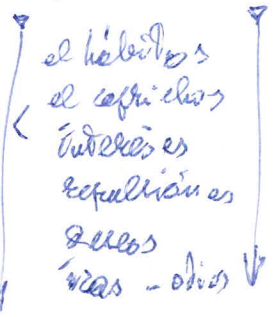 el hábitos
el caprichos
interés es
repulsión es
ascos
iras - odios